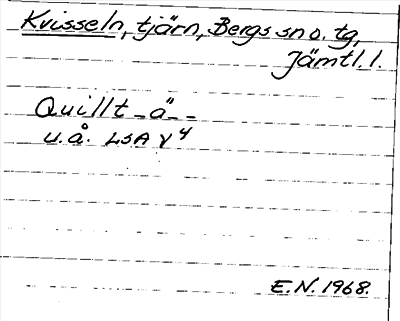 Kvisseln, tjärn, Bergs sn o. tg,
Jämtl. l.
Quillt - ä - -
u.å. LSA Y 4
E.N. 1968.